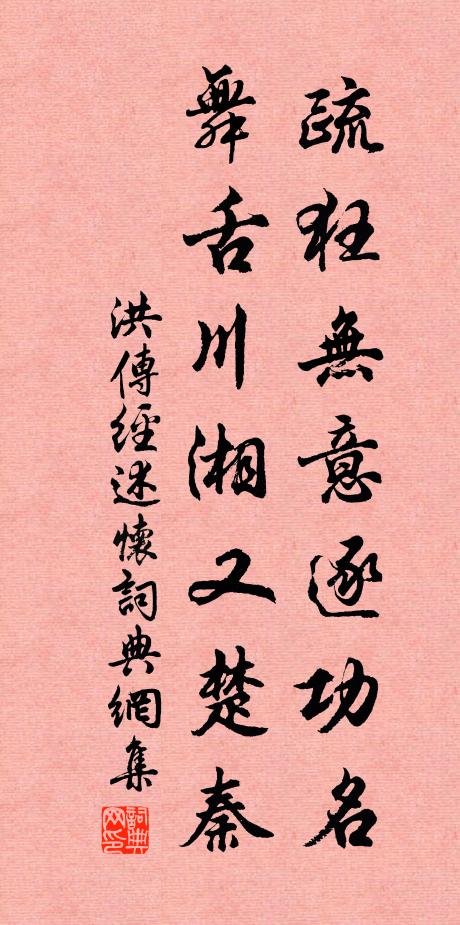 疏狂無意逐功名
舞舌川湘又楚秦
洪傳經述懷詞典網集
詞典網印